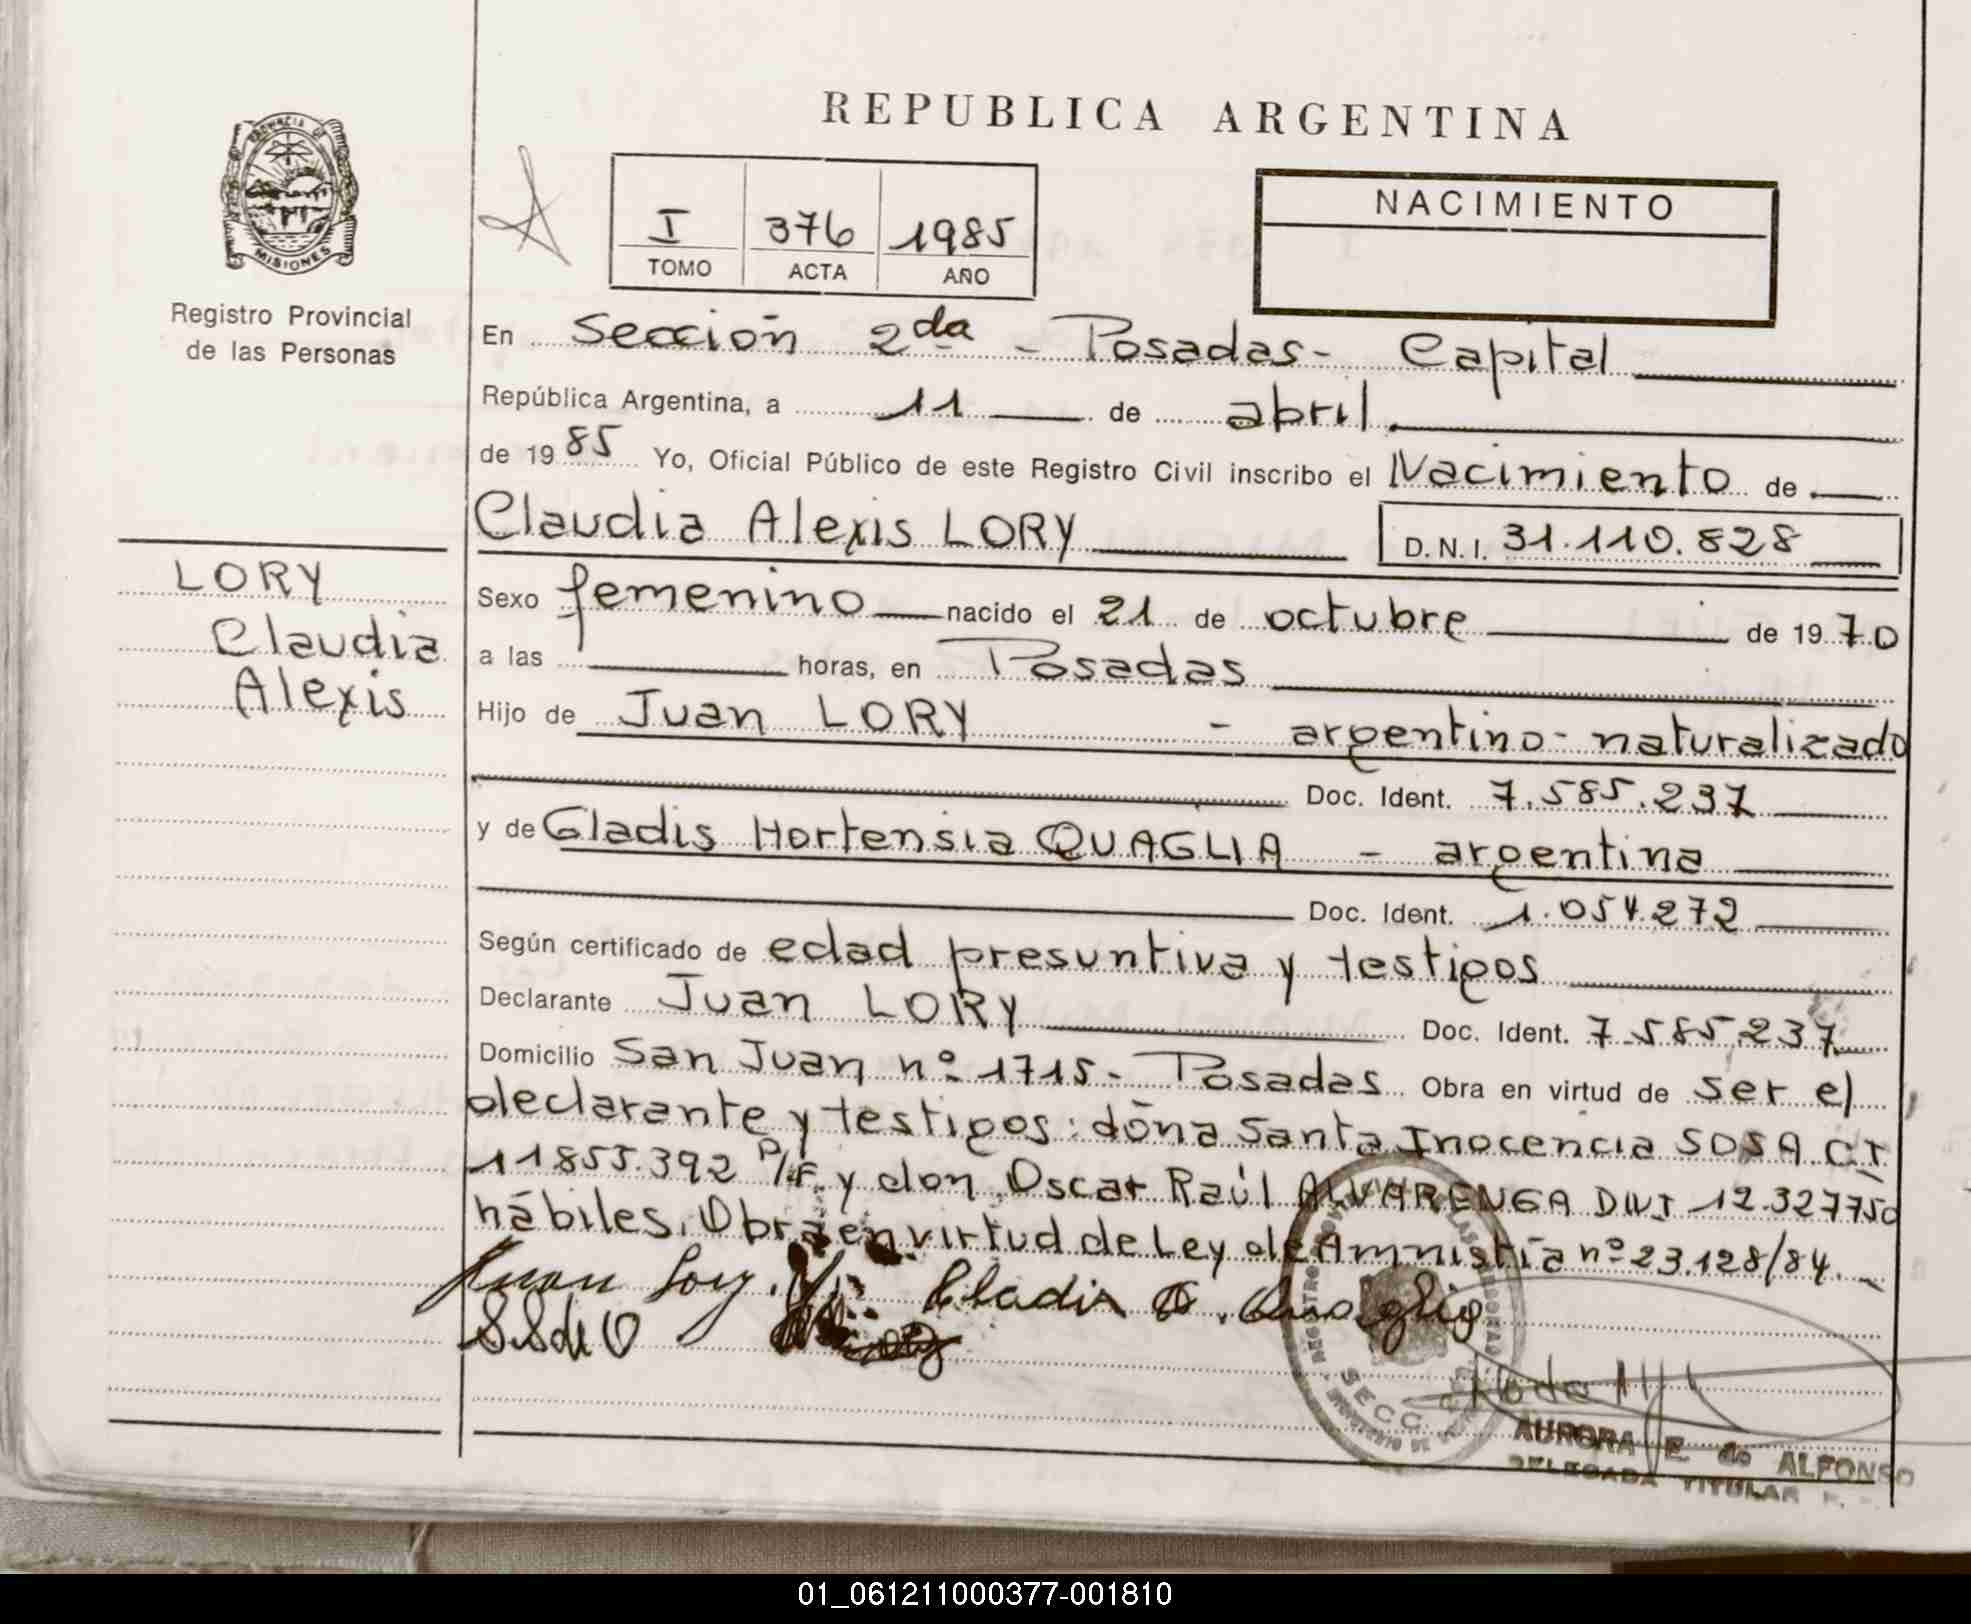 REPUBLICA ARGENTINA
PROVINCIA DE
MISIONES
Registro Provincial
de las Personas
I 376 1985
TOMO ACTA AÑO
NACIMIENTO
En Sección 2da - Posadas - Capital
República Argentina, a 11 de abril
de 1985 Yo, Oficial Público de este Registro Civil inscribo el Nacimiento de
Claudia Alexis LORY D.N.I. 31.110.828
LORY
Claudia
Alexis
Sexo femenino nacido el 21 de octubre de 1970
a las horas, en Posadas
Hijo de Juan LORY - argentino - naturalizado
Doc. Ident. 7.585.237
y de Gladis Hortensia QUAGLIA - argentina
Doc. Ident. 1.054.272
Según certificado de edad presuntiva y testigos
Declarante Juan LORY Doc. Ident. 7.585.237
Domicilio San Juan nº 1715 - Posadas Obra en virtud de ser el
declarante y testigos: doña Santa Inocencia SOSA C.I.
11855.392 P/F. y don Oscar Raúl ALVARENGA DNI 12.327750
hábiles. Obra en virtud de Ley de Amnistía nº 23.128/84.
Juan Lory. Gladis H. Quaglia
S.S de O
SECC.
AURORA E. de ALFONSO
DELEGADA TITULAR
01_061211000377-001810